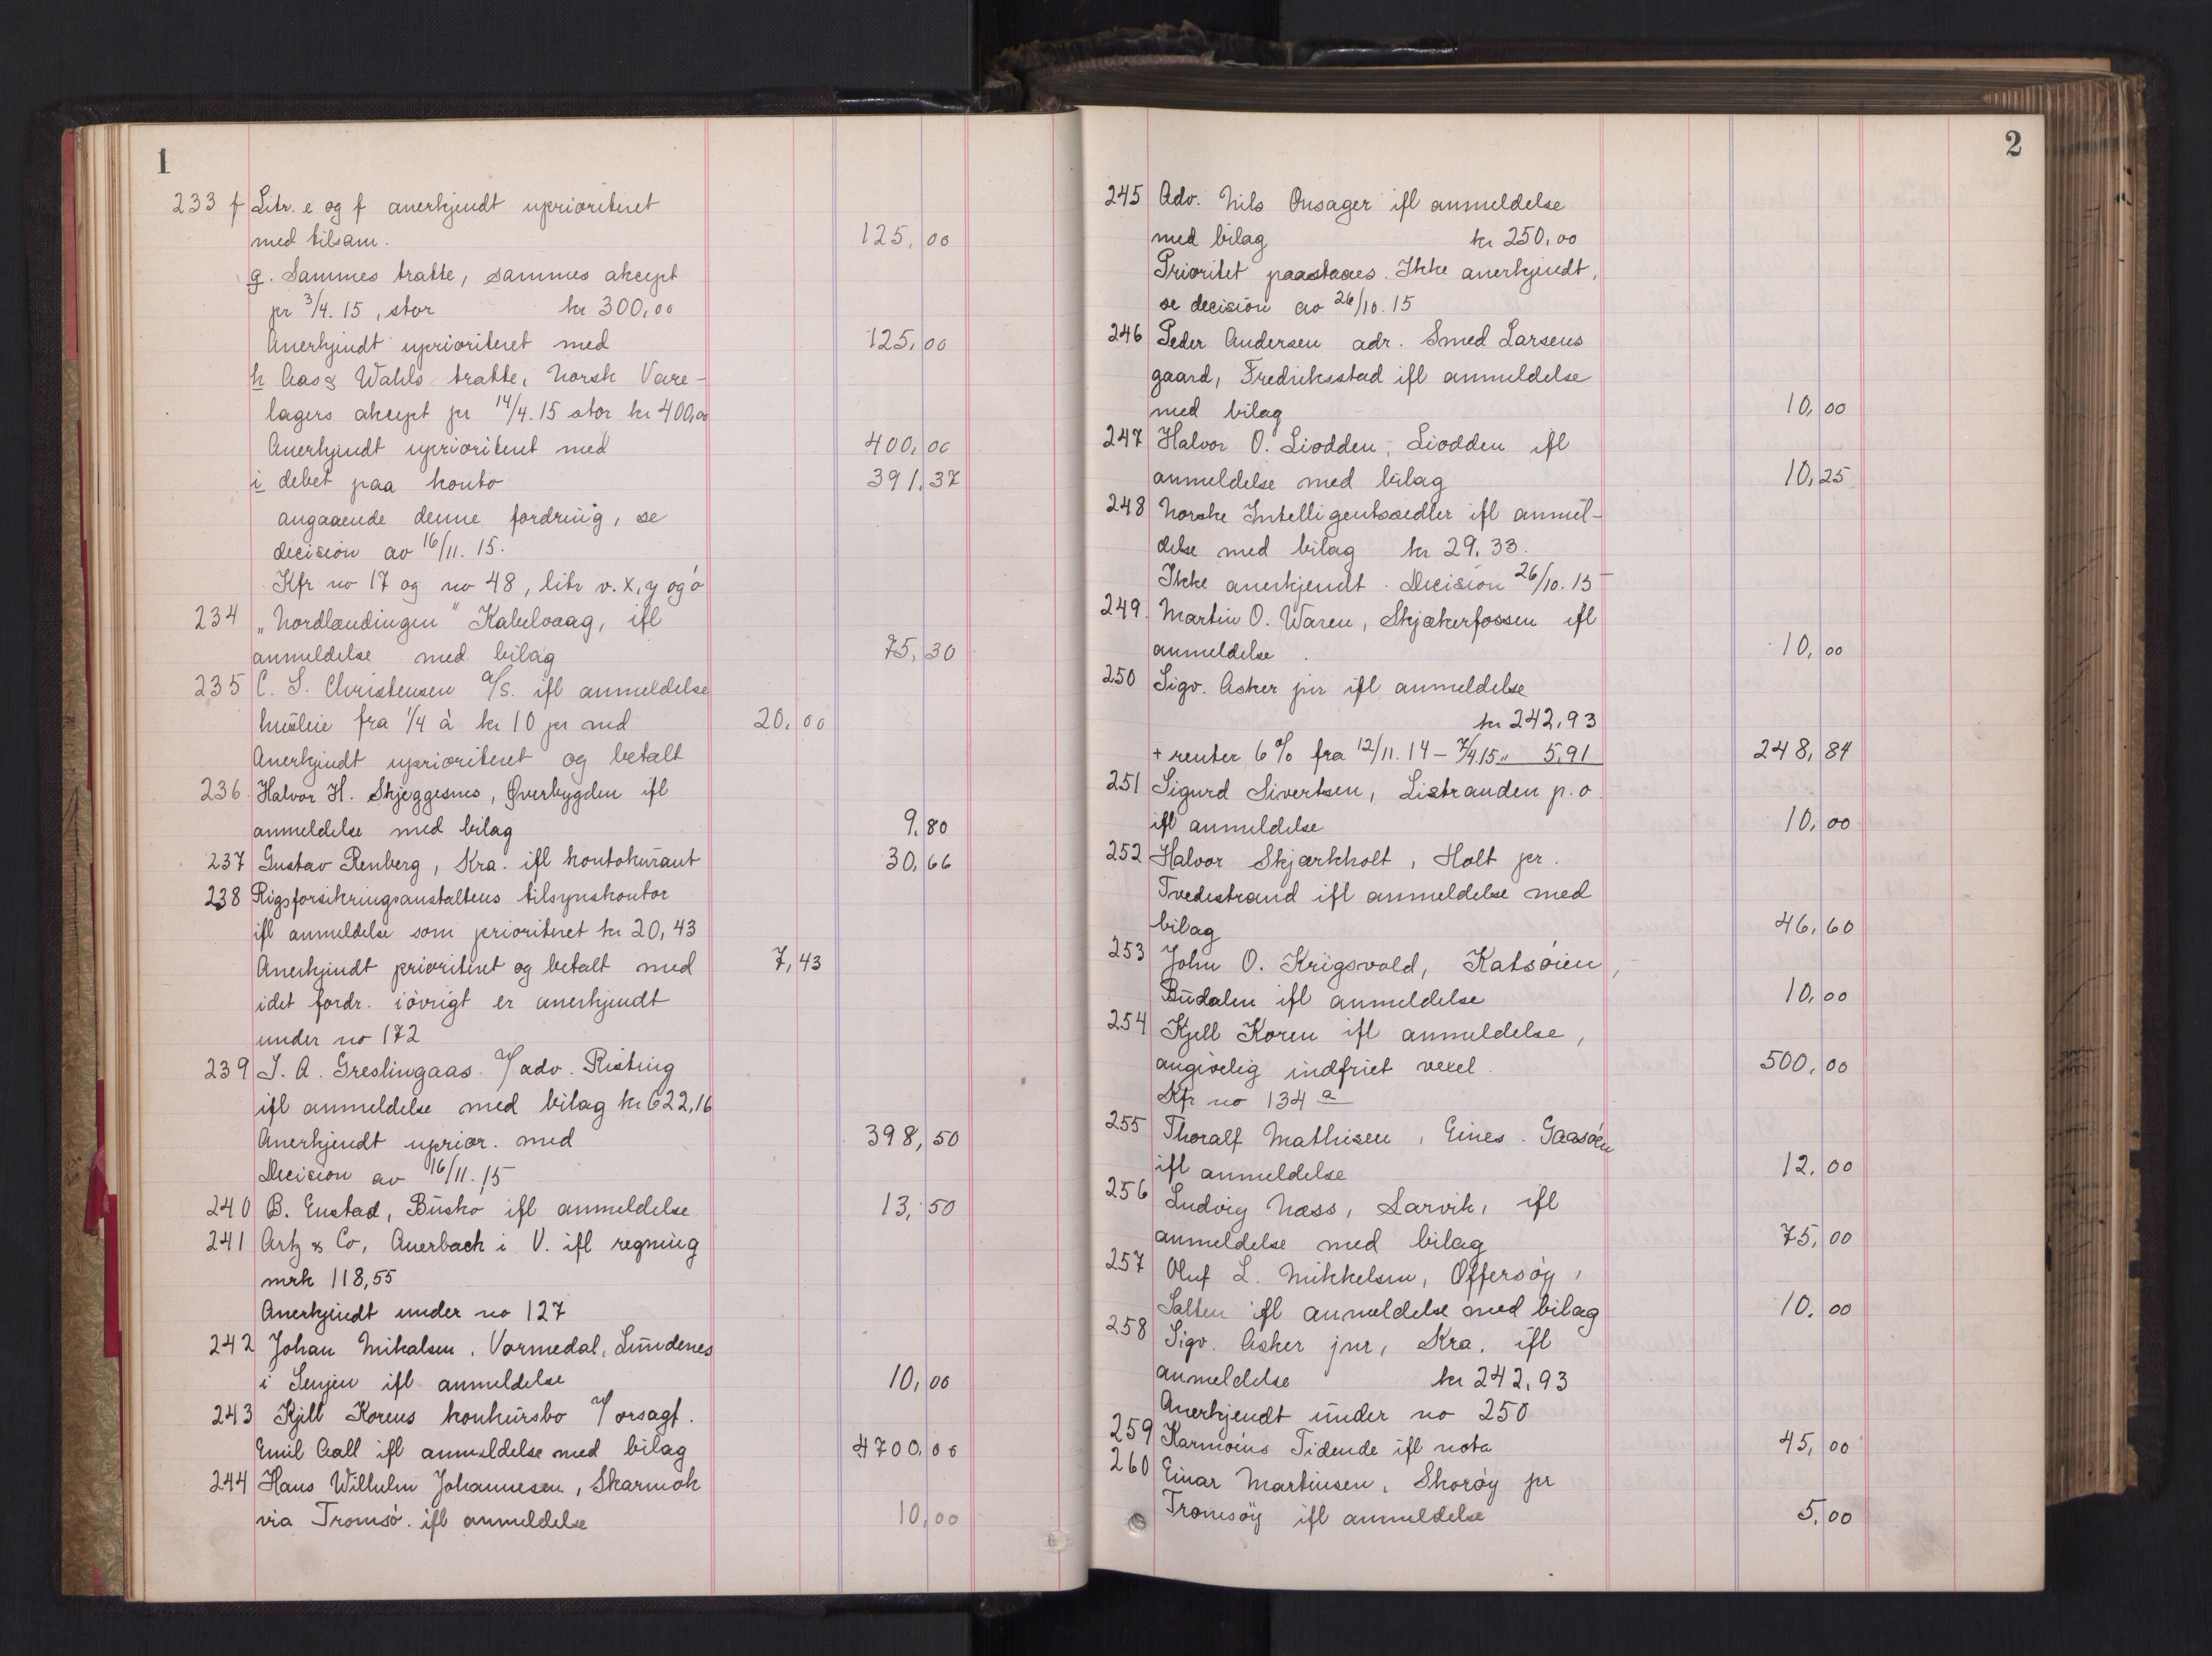 1
233 f Litr. e og f anerkjendt uprioriteret
med tilsam. 125,00
g. Sammes tratte, sammes akcept
pr 3/4. 15, stor kr 300,00
Anerkjendt uprioriteret med 125,00
h Aas & Wahls tratte, Norsk Vare-
lagers akcept pr 14/4. 15 stor kr 400,00
Anerkjendt uprioriteret med 400,00
i debet paa konto 391,37
angaaende denne fordring, se
decision av 16/11. 15.
Kfr no 17 og no 48, litr v. x, y og ö
234 „Nordlændingen" Kabelvaag, ifl
anmeldelse med bilag 75,30
235 C. S. Christensen a/s. ifl anmeldelse
husleie fra 1/4 à kr 10 pr md 20,00
Anerkjendt uprioriteret og betalt
236. Halvor H. Skjeggesnes, Øverbygden ifl
anmeldelse med bilag 9,80
237 Gustav Renberg, Kra. ifl kontokurant 30,66
238 Rigsforsikringsanstaltens tilsynskontor
ifl anmeldelse som prioriteret kr 20,43
Anerkjendt prioriteret og betalt med 7,43
idet fordr. iövrigt er anerkjendt
under no 172
239 J. A. Greslingaas v/ adv. Risting
ifl anmeldelse med bilag kr 622,16
Anerkjendt uprior. med 398,50
Decision av 16/11. 15
240 B. Enstad, Buskö ifl anmeldelse 13,50
241 Artz & Co, Auerbach i V. ifl regning
mrk 118,55
Anerkjendt under no 127
242 Johan Mikalsen, Vormedal, Lundenes
i Senjen ifl anmeldelse 10,00
243 Kjell Korens konkursbo v/ orsagf.
Emil Aall ifl anmeldelse med bilag 4700,00
244 Hans Wilhelm Johannesen, Skarmok
via Tromsö. ifl anmeldelse 10,00
2
245 Adv. Nils Onsager ifl anmeldelse
med bilag kr 250,00
Prioritet paastaaes. Ikke anerkjendt,
se decision av 26/10. 15
246 Peder Andersen adr. Smed Larsens
gaard, Fredriksstad ifl anmeldelse
med bilag 10,00
247 Halvor O. Liodden, Liodden ifl
anmeldelse med bilag 10,25
248 Norske Intelligentssedler ifl anmel-
delse med bilag kr 29,33.
Ikke anerkjendt. Decision 26/10. 15
249. Martin O. Waren, Skjækerfossen ifl
anmeldelse. 10,00
250 Sigv. Asker jnr ifl anmeldelse
kr 242,93
+ renter 6% fra 12/11. 14 – 7/4 15 „ 5,91 248,84
251 Sigurd Sivertsen, Listranden p. o.
ifl anmeldelse 10,00
252 Halvor Skjærkholt, Holt pr.
Tvedestrand ifl anmeldelse med
bilag 46,60
253 John O. Krigsvold, Katsöien,
Budalen ifl anmeldelse 10,00
254 Kjell Koren ifl anmeldelse,
angivelig indfriet vexel. 500,00
Kfr no 134 a
255 Thoralf Mathisen, Eines. Gaasöen
ifl anmeldelse 12,00
256 Ludvig Næss, Larvik, ifl
anmeldelse med bilag 75,00
257 Oluf L. Mikkelsen, Offersöy,
Salten ifl anmeldelse med bilag 10,00
258 Sigv. Asker jnr, Kra. ifl
anmeldelse kr 242,93
Anerkjendt under no 250
259 Karmöins Tidende ifl nota 45,00
260 Einar Martinsen, Skoröy pr
Tromsöy ifl anmeldelse 5,00